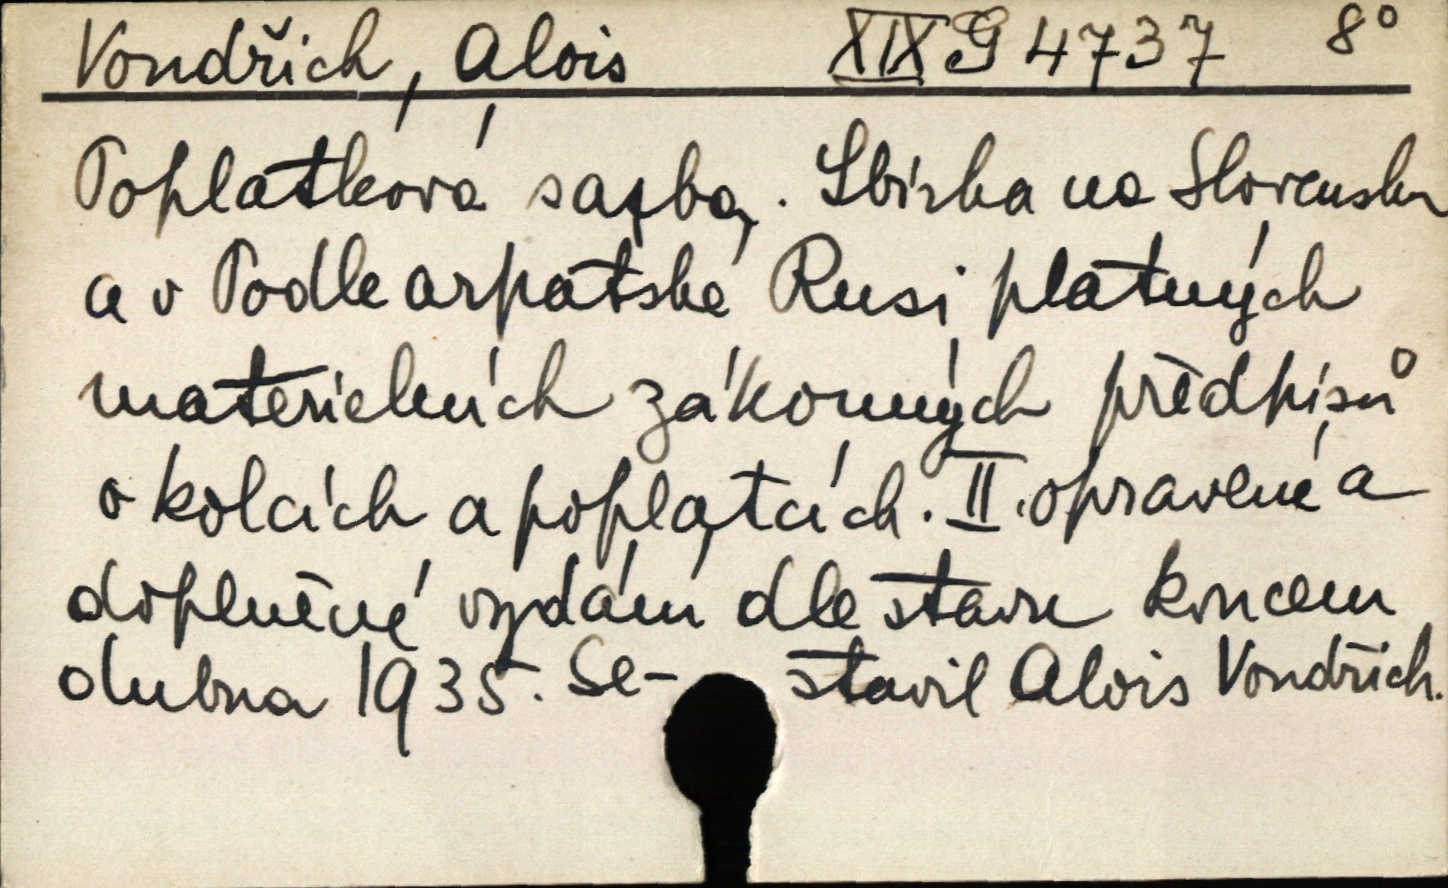 Vondřich, Alois XIX G 4737 8°
Poplatková sazba. Sbírka na Slovensku
a v Podkearpatské Rusi platných
materielních zákonných předpisů
o kolcích a poplatcích. II. opravené a
doplněné vydání dle stavu koncem
dubna 1935. Se-stavil Alois Vondřich.